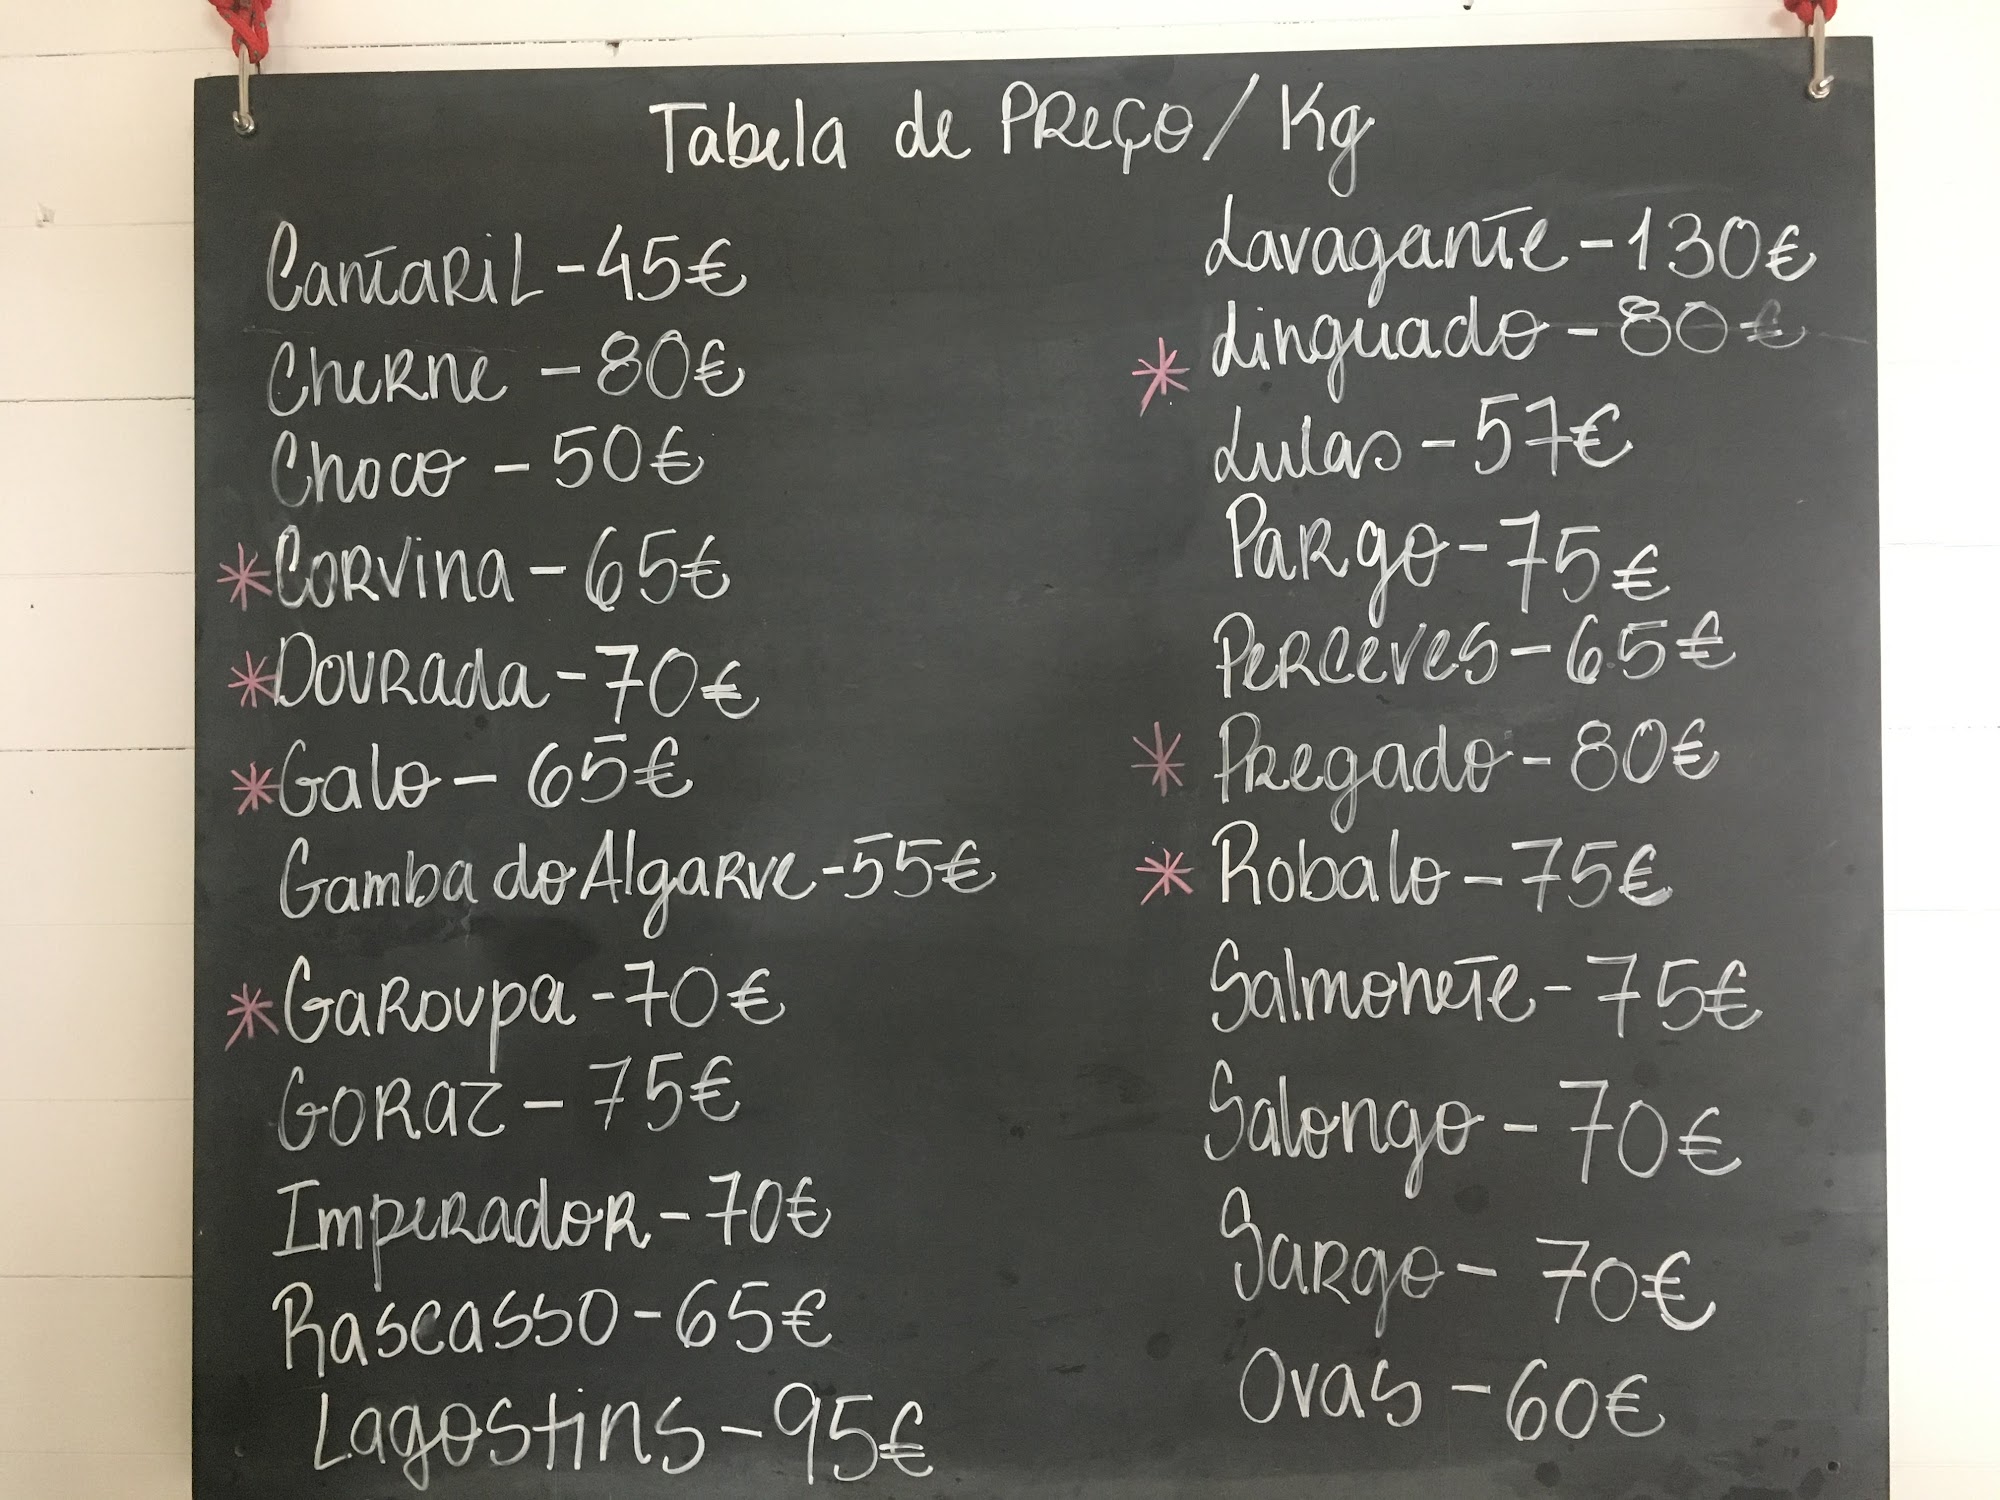 Tabela de Preço / Kg
Cantaril - 45€
Cherne - 80€
Choco - 50€
* Corvina - 65€
* Dourada - 70€
* Galo - 65€
Gamba do Algarve - 55€
* Garoupa - 70€
Goraz - 75€
Imperador - 70€
Rascasso - 65€
Lagostins - 95€
Lavagante - 130€
* Linguado - 80€
Lulas - 57€
Pargo - 75€
Perceves - 65€
* Pregado - 80€
* Robalo - 75€
Salmonete - 75€
Salongo - 70€
Sargo - 70€
Ovas - 60€